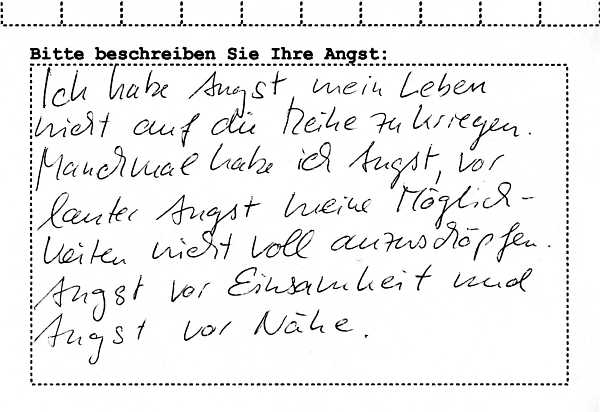 Bitte beschreiben Sie Ihre Angst:
Ich habe Angst mein Leben
nicht auf die Reihe zu kriegen.
Manchmal habe ich Angst, vor
lauter Angst meine Möglich-
keiten nicht voll anzuschöpfen.
Angst vor Einsamkeit und
Angst vor Nähe.